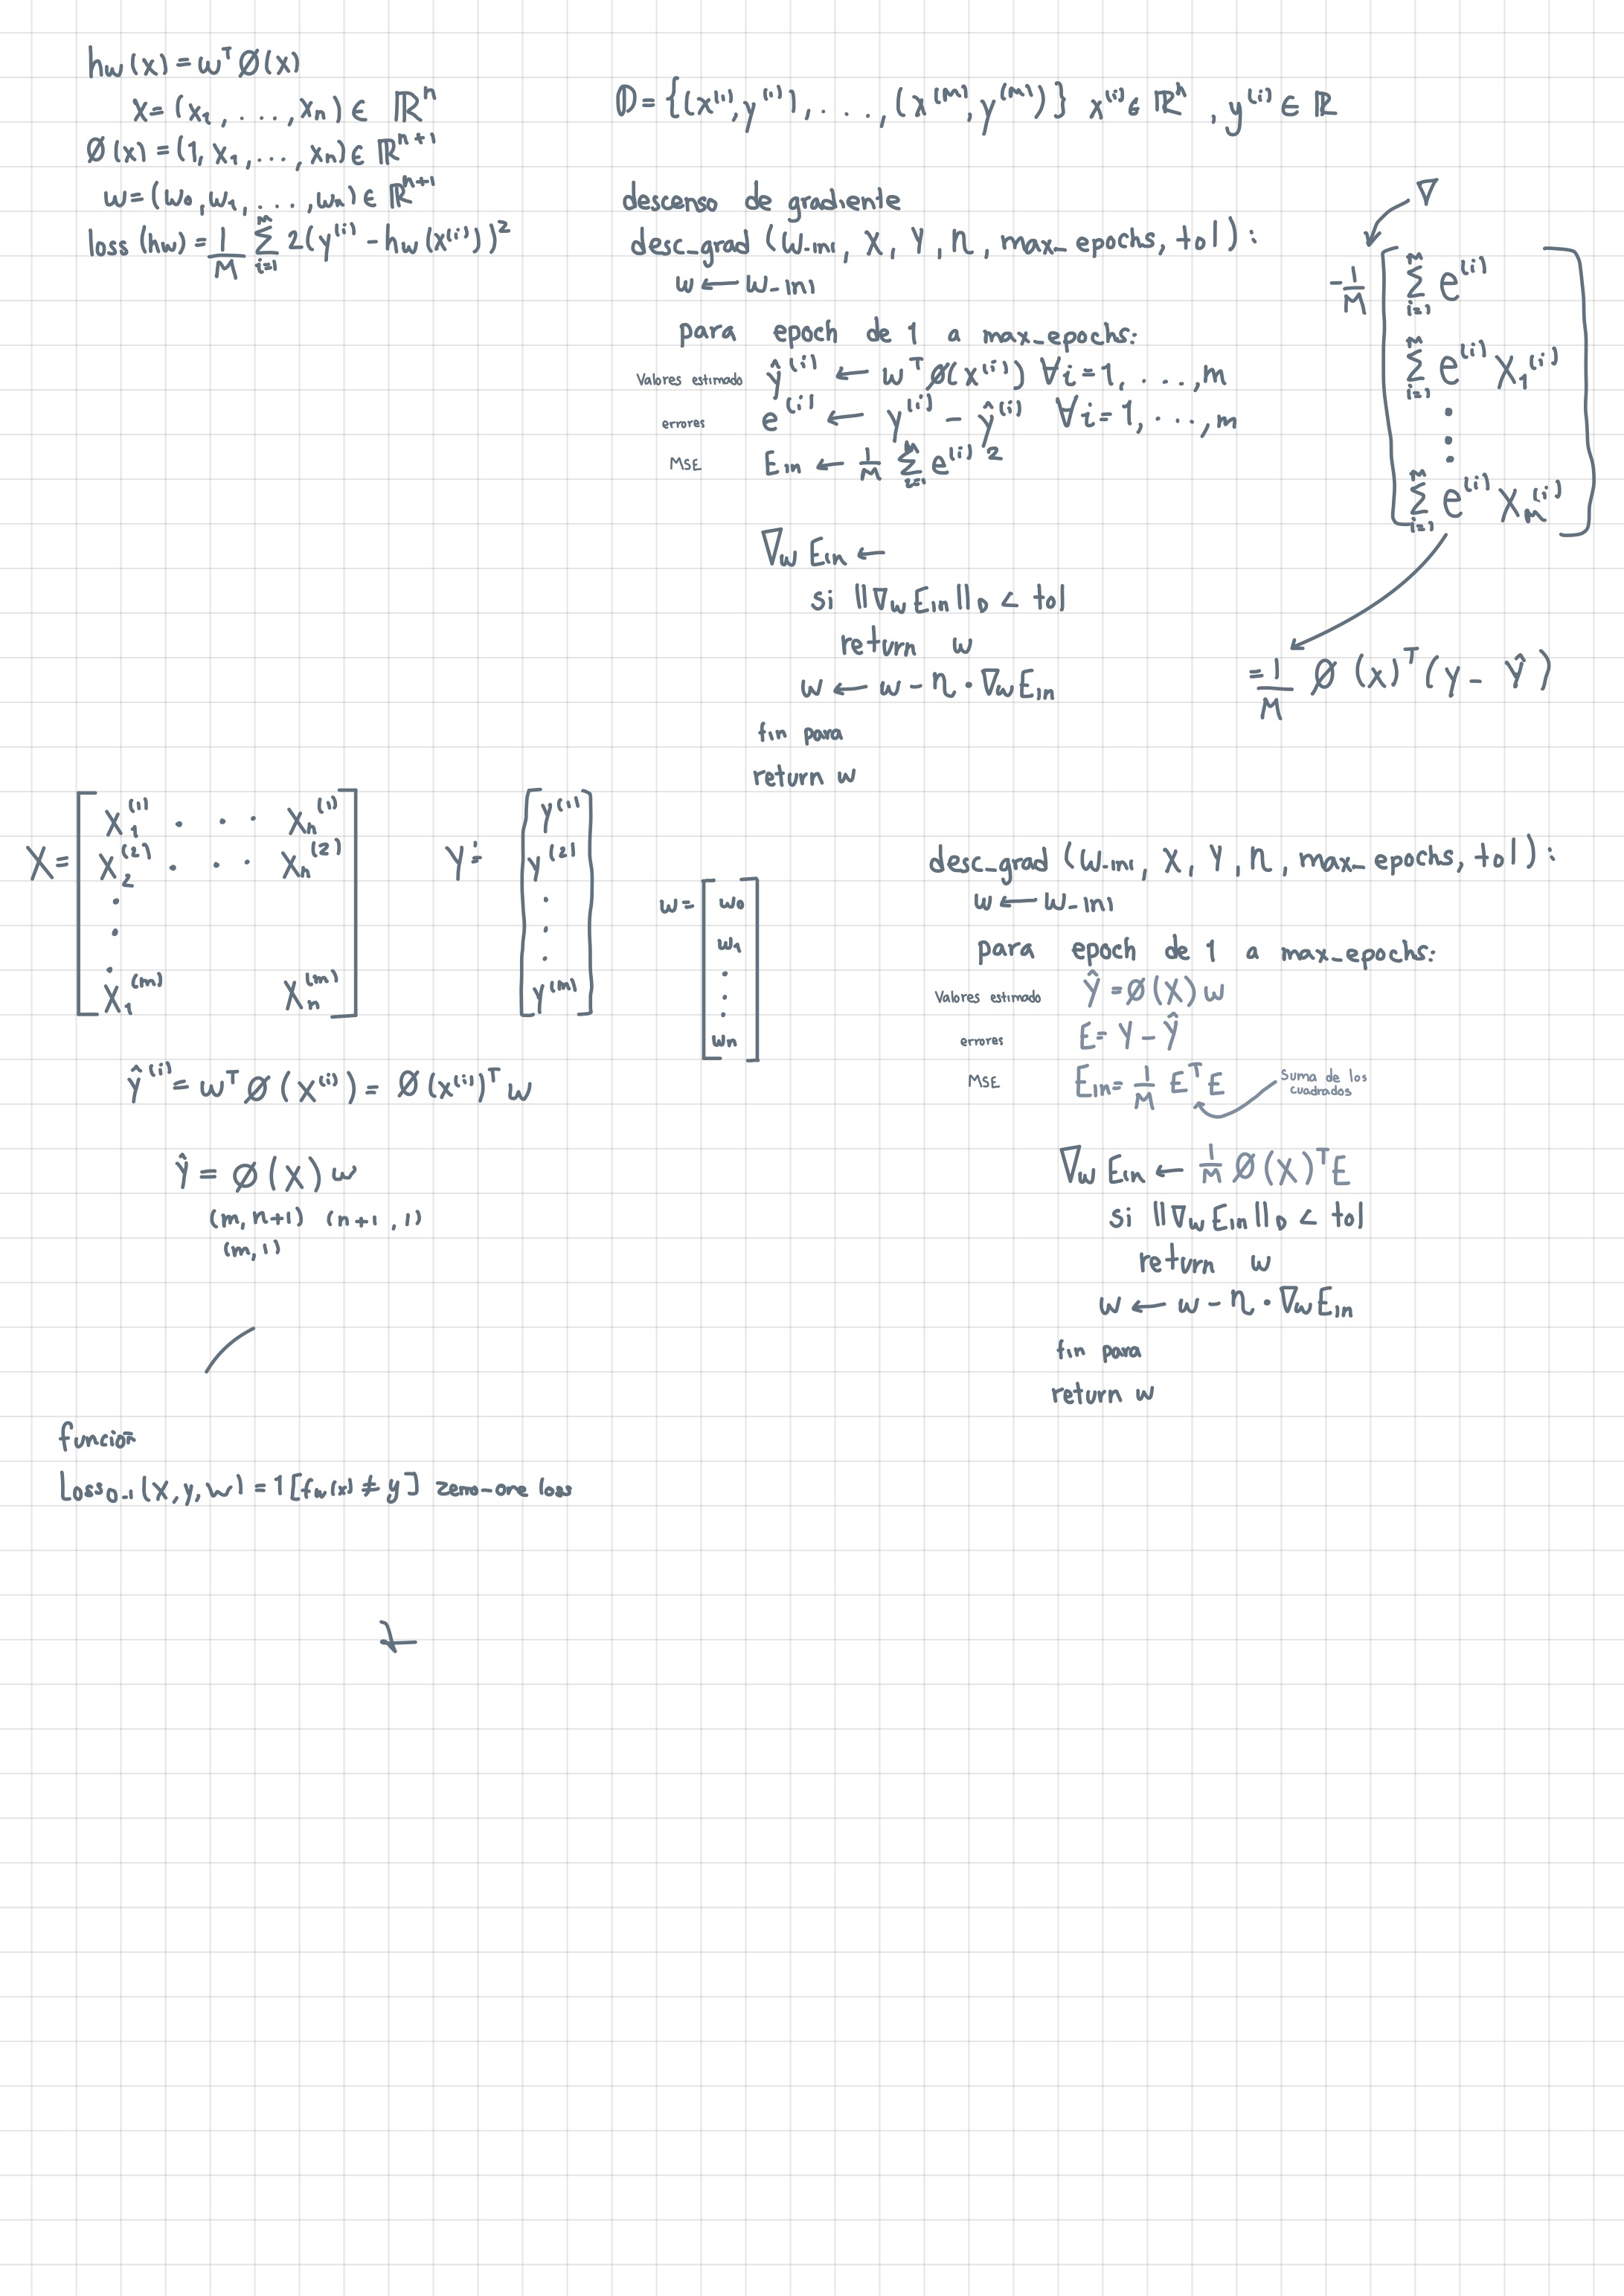 hw(x) = wᵀ Ø(x)
x = (x₁, ..., xn) ∈ ℝⁿ
Ø(x) = (1, x₁, ..., xn) ∈ ℝⁿ⁺¹
w = (w₀, w₁, ..., wn) ∈ ℝⁿ⁺¹
loss (hw) = 1/M Σᵢ₌₁ᵐ 2(y⁽ⁱ⁾ - hw(x⁽ⁱ⁾))²
𝔻 = {(x⁽¹⁾, y⁽¹⁾), ..., (x⁽ᴹ⁾, y⁽ᴹ⁾)} x⁽ⁱ⁾ ∈ ℝⁿ, y⁽ⁱ⁾ ∈ ℝ
descenso de gradiente
desc_grad (w_ini, X, Y, η, max_epochs, tol):
w ← w_ini
para epoch de 1 a max_epochs:
Valores estimado ŷ⁽ⁱ⁾ ← wᵀ Ø(x⁽ⁱ⁾) ∀i=1, ..., m
errores e⁽ⁱ⁾ ← y⁽ⁱ⁾ - ŷ⁽ⁱ⁾ ∀i=1, ..., m
MSE Ein ← 1/M Σᵢ₌₁ᴹ e⁽ⁱ⁾ 2
∇w Ein ←
si ||∇w Ein||₀ < tol
return w
w ← w - η · ∇w Ein
fin para
return w
∇
-1/M [ Σᵢ₌₁ᵐ e⁽ⁱ⁾
Σᵢ₌₁ᵐ e⁽ⁱ⁾ X₁⁽ⁱ⁾
⋮
Σᵢ₌₁ᵐ e⁽ⁱ⁾ Xₘ⁽ⁱ⁾ ]
= 1/M Ø(x)ᵀ (y - Ŷ)
X = [ X₁⁽¹⁾ . . . Xn⁽¹⁾
X₂⁽²⁾ . . . Xn⁽²⁾
⋮
X₁⁽ᵐ⁾ Xn⁽ᵐ⁾ ]
Y = [ y⁽¹⁾
y⁽²⁾
⋮
y⁽ᵐ⁾ ]
w = [ w₀
w₁
⋮
wn ]
ŷ⁽ⁱ⁾ = wᵀ Ø(x⁽ⁱ⁾) = Ø(x⁽ⁱ⁾)ᵀ w
Ŷ = Ø(X) w
(m, n+1) (n+1, 1)
(m, 1)
desc_grad (w_ini, X, Y, η, max_epochs, tol):
w ← w_ini
para epoch de 1 a max_epochs:
Valores estimado Ŷ = Ø(X) w
errores E = Y - Ŷ
MSE Ein = 1/M Eᵀ E
Suma de los
cuadrados
∇w Ein ← 1/M Ø(X)ᵀ E
si ||∇w Ein||₀ < tol
return w
w ← w - η · ∇w Ein
fin para
return w
función
Loss₀₋₁ (X, y, w) = 1[fw(x) ≠ y] zero-one loss